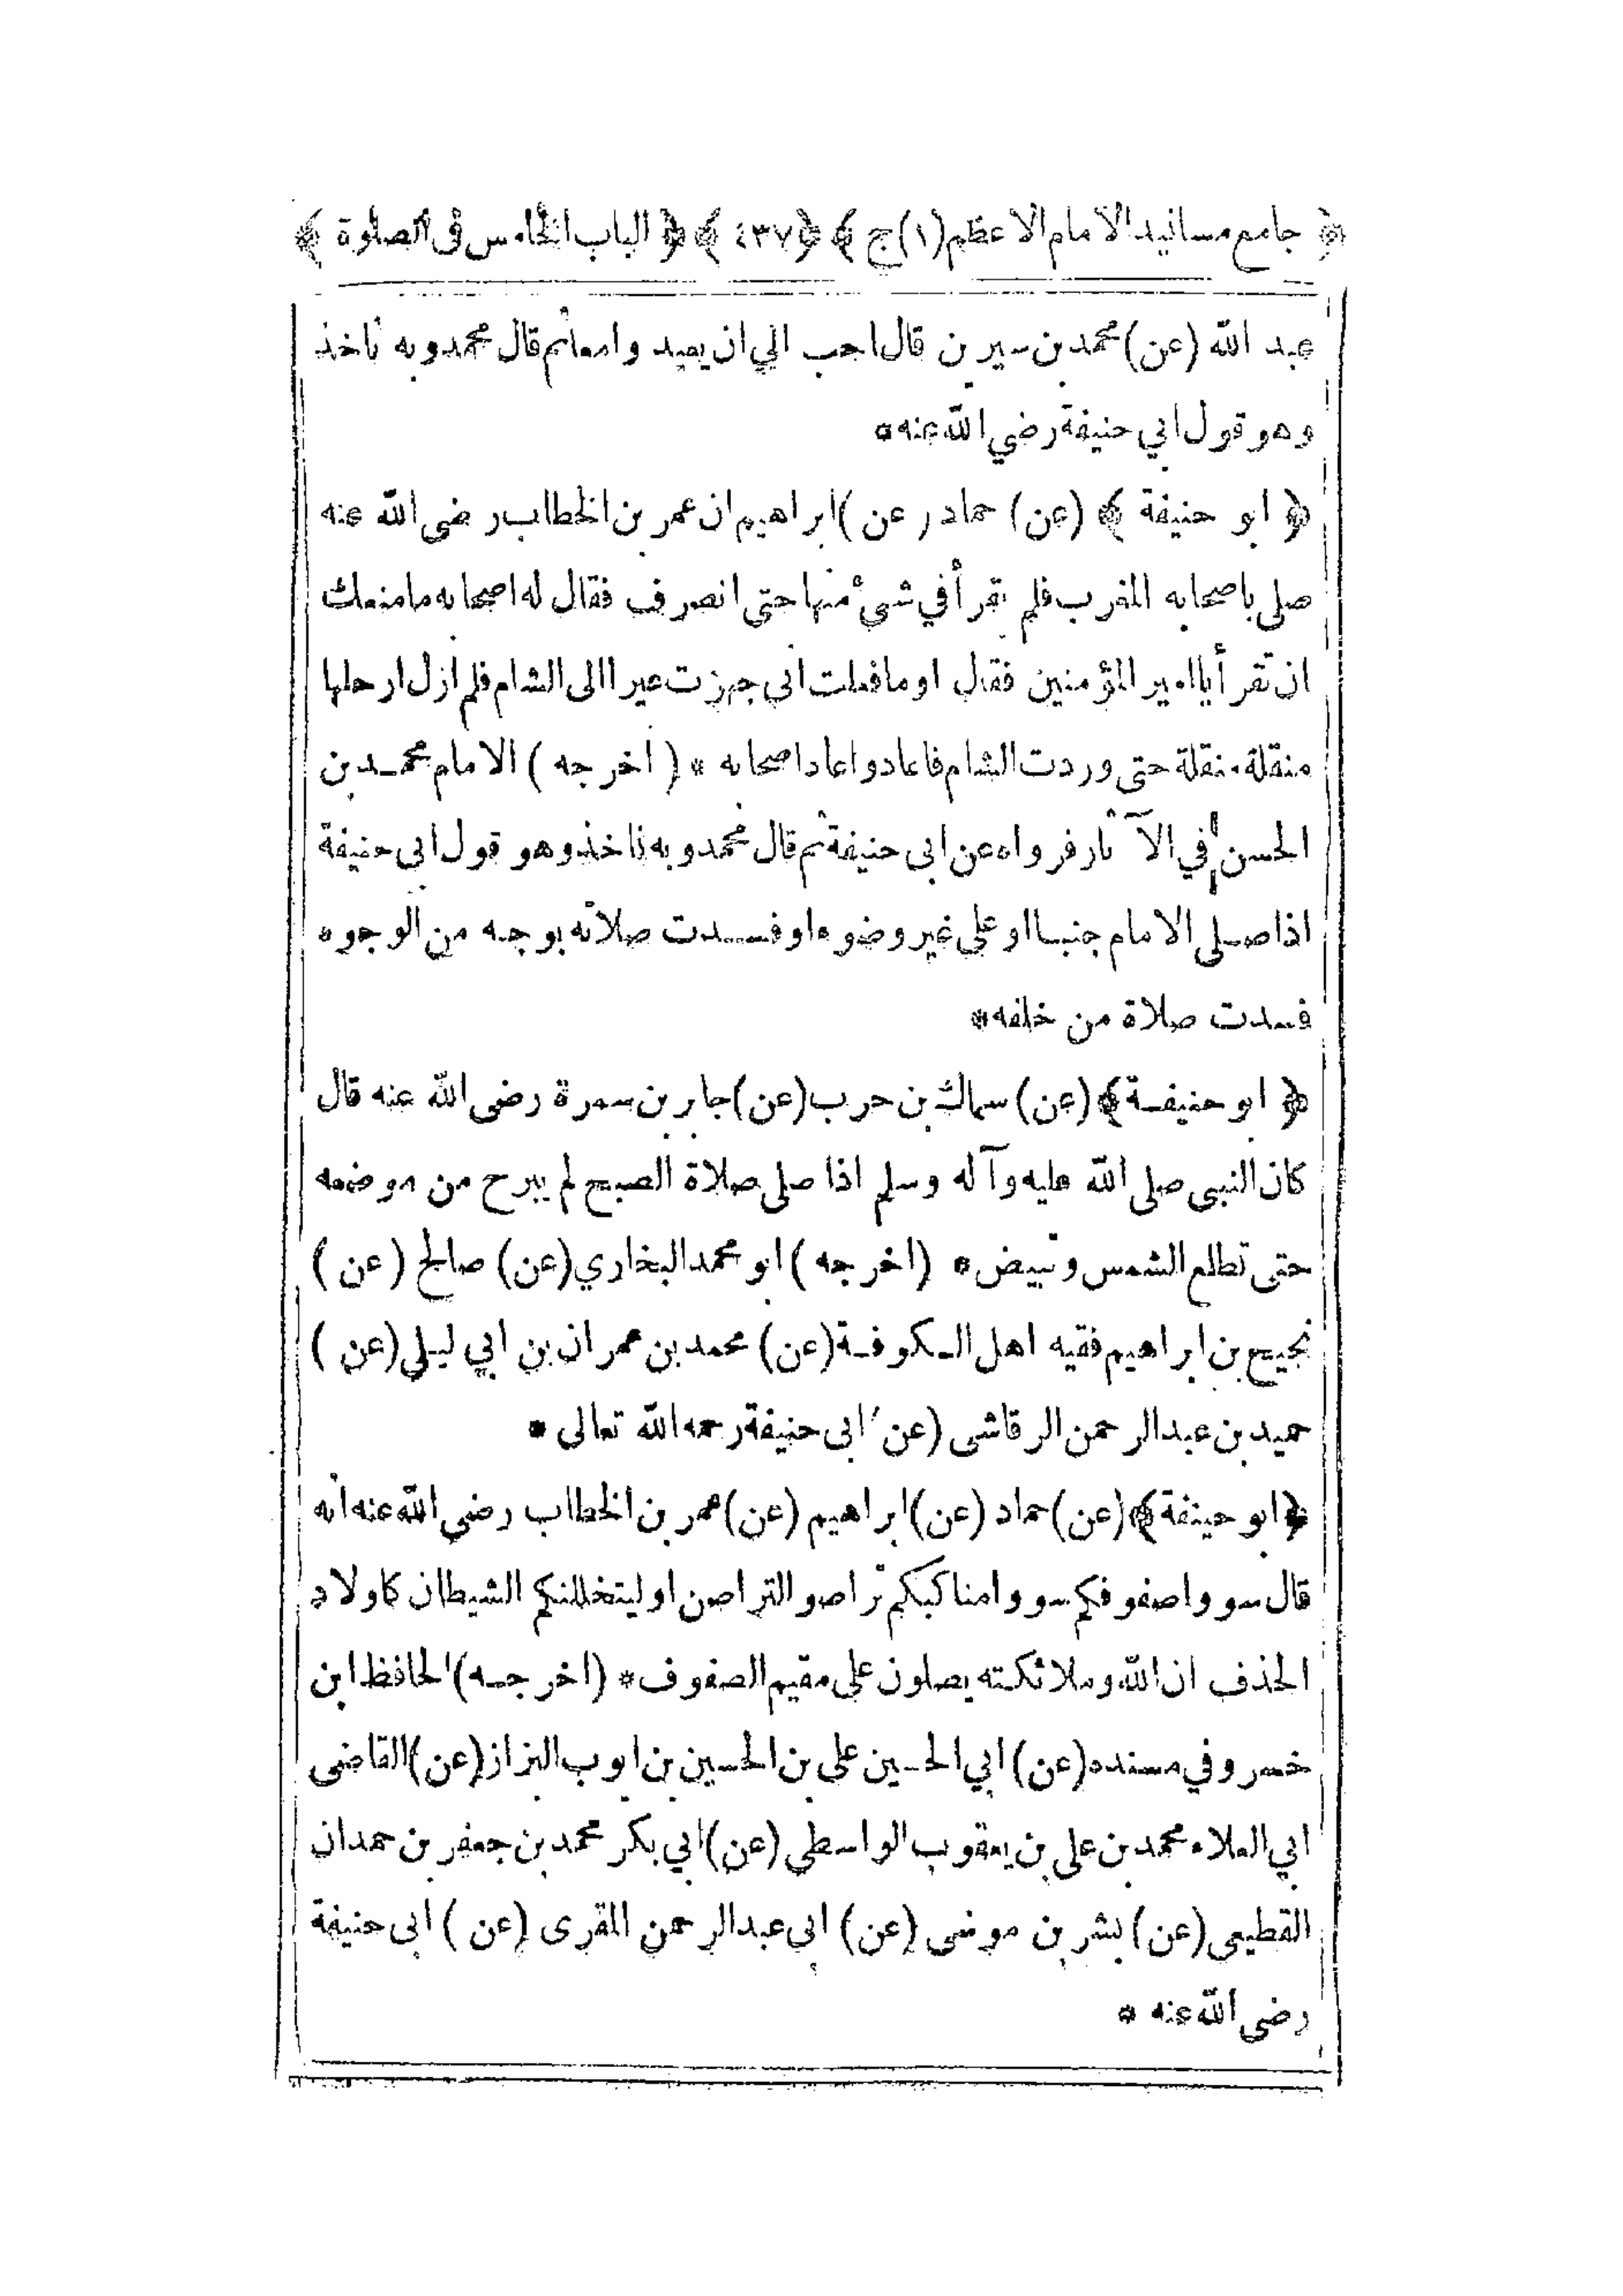 ﴿ جامع مسانيد الامام الاعظم (١) ج ﴾ ﴿٤٣٧﴾ ﴿ الباب الخامس فى الصلوة ﴾
عبد الله (عن) محمد بن سيرين قال احب الي ان يعيد وامعاثم قال محمد وبه ناخذ
وهو قول ابي حنيفة رضي الله عنه *
﴿ ابو حنيفة ﴾ (عن) حماد (عن) ابراهيم ان عمر بن الخطاب رضى الله عنه
صلى باصحابه المغرب فلم يقرأ في شئ منها حتى انصرف فقال له اصحابه ما منعك
ان تقرأ يا امير المؤمنين فقال او ما فعلت انى جهزت عيرا الى الشام فلم ازل ارحلها
منقلة منقلة حتى وردت الشام فاعاد واعاد اصحابه * ( اخرجه ) الامام محمد بن
الحسن في الآثار فرواه عن ابى حنيفة ثم قال محمد وبه ناخذ وهو قول ابى حنيفة
اذا صلى الامام جنبا او على غير وضوء او فسدت صلاته بوجه من الوجوه
فسدت صلاة من خلفه *
﴿ ابو حنيفة ﴾ (عن) سماك بن حرب (عن) جابر بن سمرة رضى الله عنه قال
كان النبى صلى الله عليه وآله وسلم اذا صلى صلاة الصبح لم يبرح من موضعه
حتى تطلع الشمس وتبيض * (اخرجه) ابو محمد البخاري (عن) صالح (عن)
نجيح بن ابراهيم فقيه اهل الكوفة (عن) محمد بن عمران بن ابي ليلى (عن)
حميد بن عبد الرحمن الرقاشى (عن) ابى حنيفة رحمه الله تعالى *
﴿ ابو حينفة ﴾ (عن) حماد (عن) ابراهيم (عن) عمر بن الخطاب رضي الله عنه انه
قال سووا صفوفكم سووا مناكبكم تراصوا لتراصن او ليتخللنكم الشيطان كاولاد
الحذف ان الله وملائكته يصلون على مقيم الصفوف * (اخرجه) الحافظ ابن
خسرو في مسنده (عن) ابي الحسين على بن الحسين بن ايوب البزاز (عن) القاضى
ابي العلاء محمد بن على بن يعقوب الواسطي (عن) ابي بكر محمد بن جعفر بن حمدان
القطيعى (عن) بشر بن موسى (عن) ابى عبد الرحمن المقرى (عن) ابى حنيفة
رضى الله عنه *